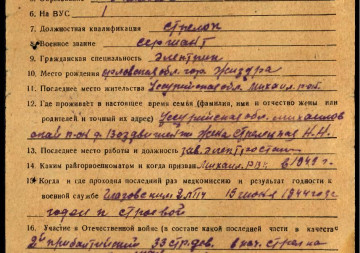 6. На ВУС 1
7. Должностная квалификация стрелок
8. Военное звание сержант
9. Гражданская специальность электрик
10. Место рождения область гор. Жиздра
11. Последнее место жительства Уссурийская обл. Михайл.
12. Где проживает в настоящее время семья (фамилия, имя и отчество жены или
родителей и точный их адрес) Уссурийская обл.
жена Н.Н.
13. Последнее место работы и должность зав. электростан
14. Каким райгорвоенкоматом и когда призван Михайл. РВК в 194 г.
15. Когда и где проходил последний раз медкомиссию и результат годности к
военной службе 15 июня 1944 года
годен к строевой
16. Участие в Отечественной войне (в составе какой последней части в качестве
2й прибалтийский 33 стр. див. в кач. стрелка